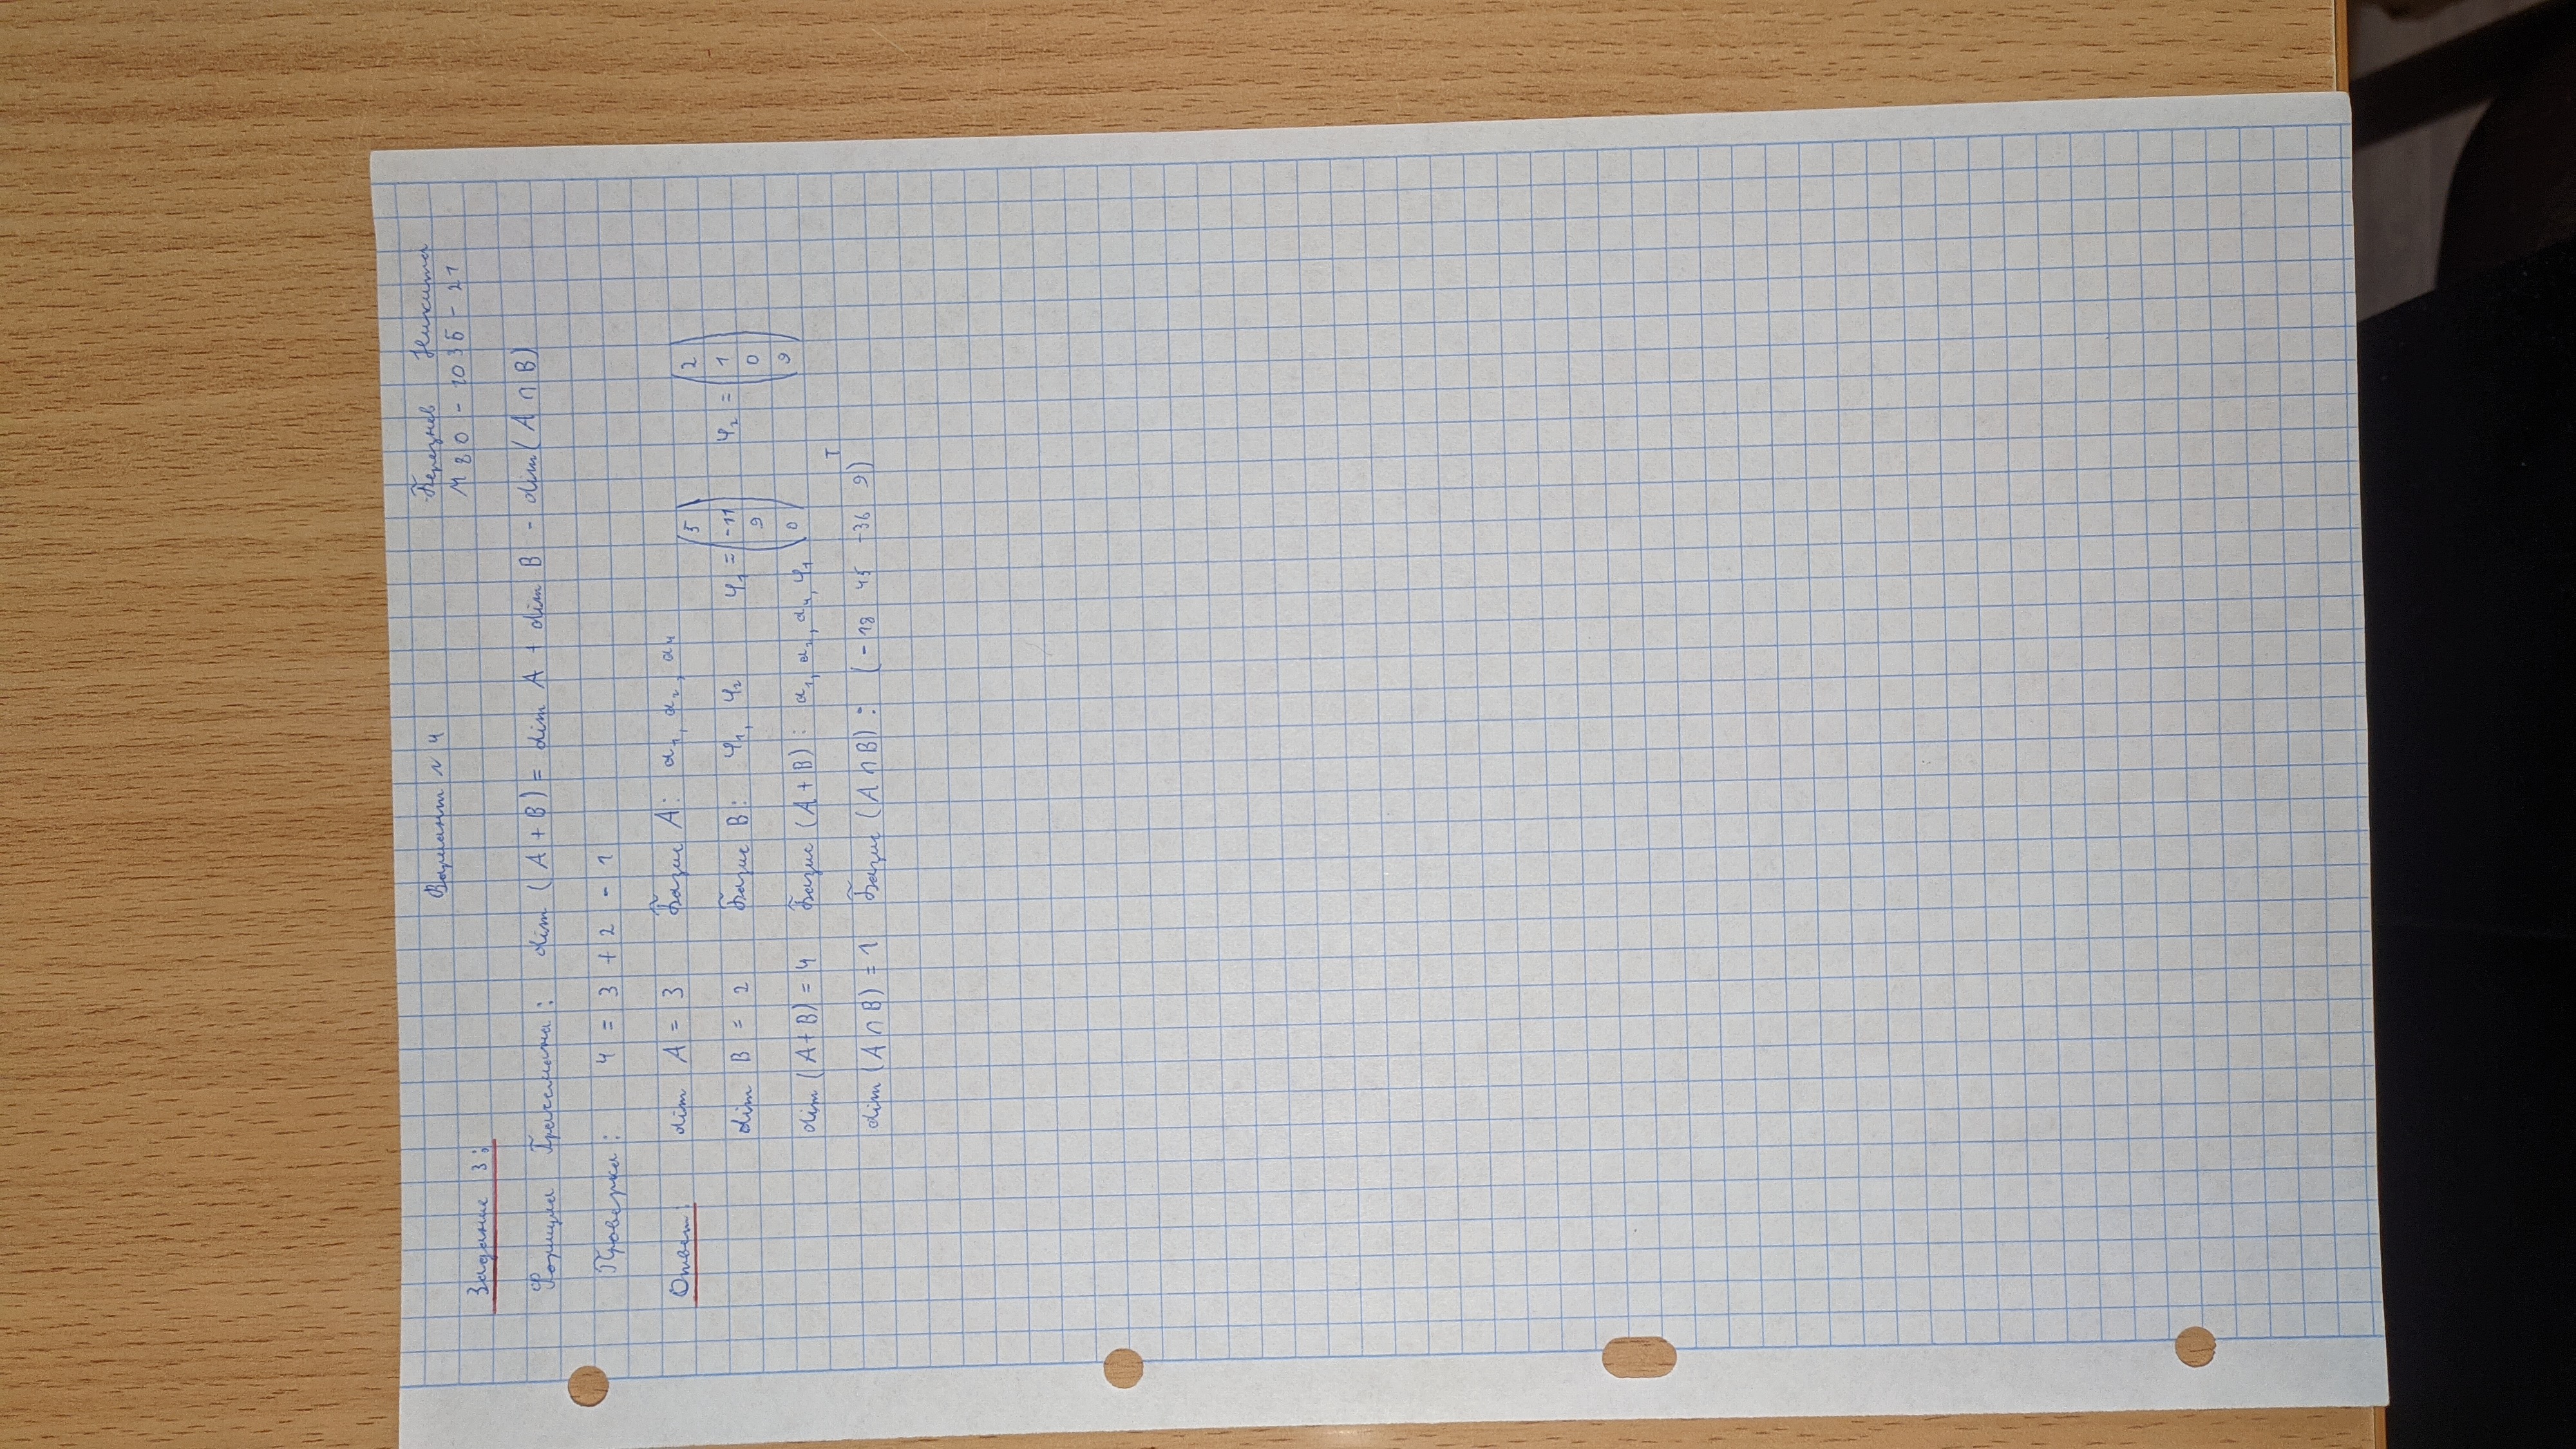 Вариант №4
Березнев Никита
М80-103Б-21
Задание 3:
Формула Грассмана: dim (A + B) = dim A + dim B - dim (A ∩ B)
Проверка: 4 = 3 + 2 - 1
Ответ: dim A = 3 Базис A: a₁, a₂, a₄
dim B = 2 Базис B: φ₁, φ₂ φ₁ = (5 -11 9 0) φ₂ = (2 1 0 9)
dim (A+B) = 4 Базис (A + B): a₁, a₂, a₄, φ₁
dim (A ∩ B) = 1 Базис (A ∩ B): (-18 45 -36 9)ᵀ